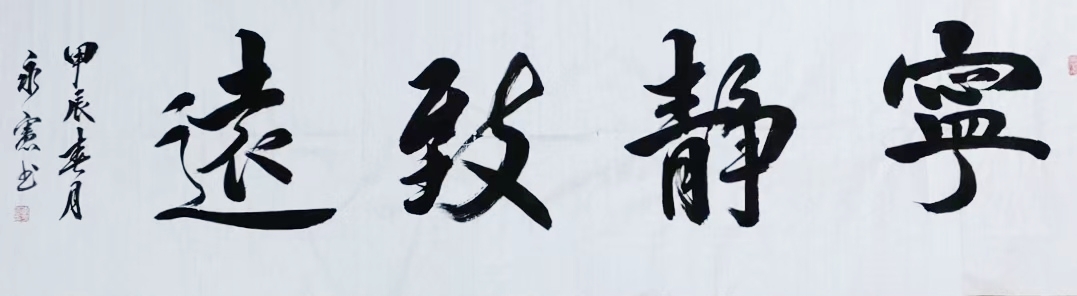 寧靜致遠
甲辰春月
永憲书